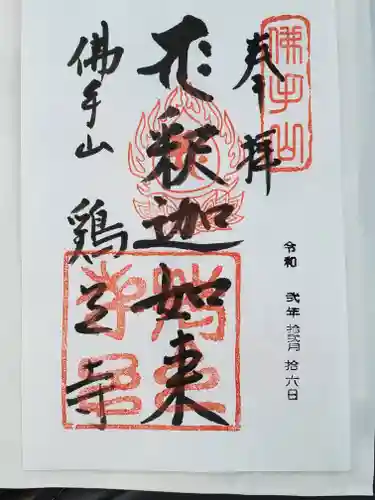 佛手山
奉拝
令和 弐年 拾弐月 拾六日
形釈迦如来
佛手山 鶏足寺